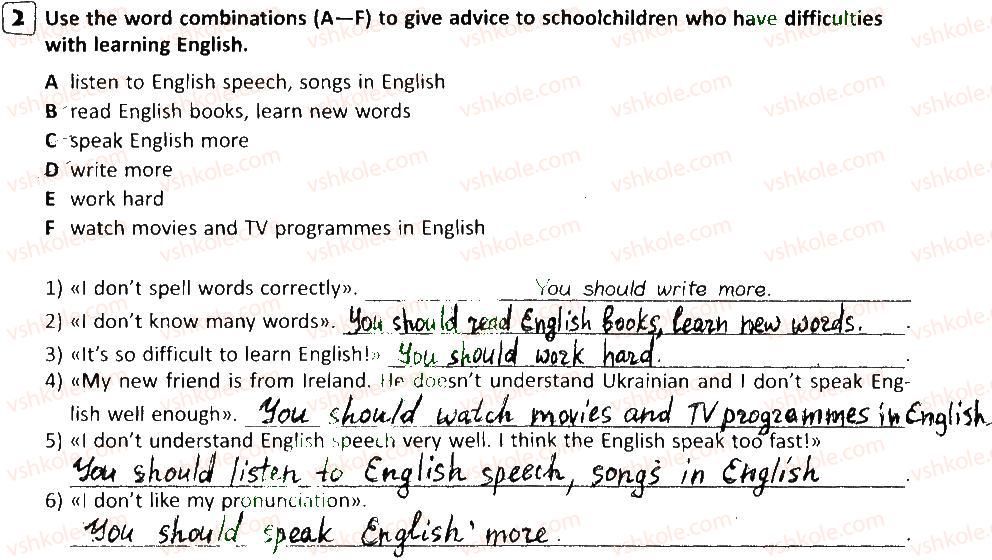 2 Use the word combinations (A—F) to give advice to schoolchildren who have difficulties
with learning English.
A listen to English speech, songs in English
B read English books, learn new words
C speak English more
D write more
E work hard
F watch movies and TV programmes in English
1) «I don't spell words correctly». You should write more.
2) «I don't know many words». You should read English books, learn new words.
3) «It's so difficult to learn English!» You should work hard.
4) «My new friend is from Ireland. He doesn't understand Ukrainian and I don't speak Eng-
lish well enough». You should watch movies and TV programmes in English
5) «I don't understand English speech very well. I think the English speak too fast!»
You should listen to English speech, songs in English
6) «I don't like my pronunciation».
You should speak English more.
vshkole.com